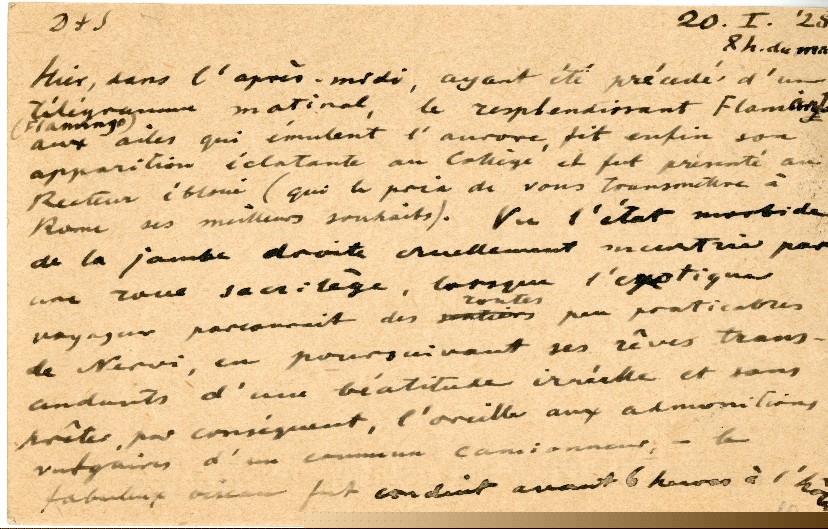 D + S
20. I. '28
8 h. du ma
Hier, dans l'après-midi, ayant été précédé d'un
télégramme matinal, le resplendissant Flamingo
(Flamingo)
aux ailes qui émulent l'aurore, fit enfin son
apparition éclatante au Collège, et fut présenté au
Recteur ébloui (qui le pria de vous transmettre à
Rome ses meilleurs souhaits). Vu l'état morbide
de la jambe droite cruellement meurtrie par
une roue sacrilège, lorsque l'exotique
voyageur parcourait des routes peu praticables
de Nervi, en poursuivant ses rêves trans-
cendants d'une béatitude irréelle et sans
prêter, par conséquent, l'oreille aux admonitions
vulgaires d'un commun camionneur, – le
fabuleux oiseau fut conduit avant 6 heures à l'hô